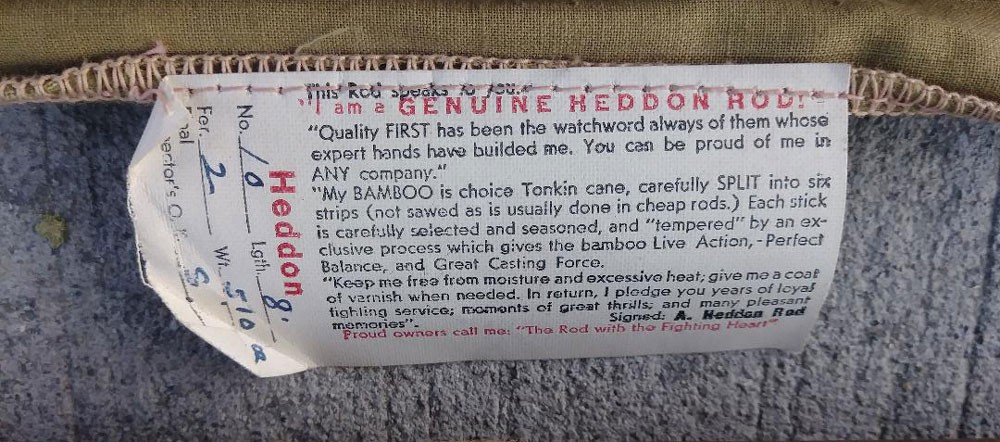 This Rod speaks to you:
"I am a GENUINE HEDDON ROD!"
"Quality FIRST has been the watchword always of them whose
expert hands have builded me. You can be proud of me in
ANY company."
"My BAMBOO is choice Tonkin cane, carefully SPLIT into six
strips (not sawed as is usually done in cheap rods.) Each stick
is carefully selected and seasoned, and "tempered" by an ex-
clusive process which gives the bamboo Live Action,-Perfect
Balance, and Great Casting Force.
"Keep me free from moisture and excessive heat; give me a coat
of varnish when needed. In return, I pledge you years of loyal
fighting service; moments of great thrills; and many pleasant
memories". Signed: A. Heddon Rod
Proud owners call me: "The Rod with the Fighting Heart"
Heddon
No. 10 Lgth. 8'
For. 2 Wt.